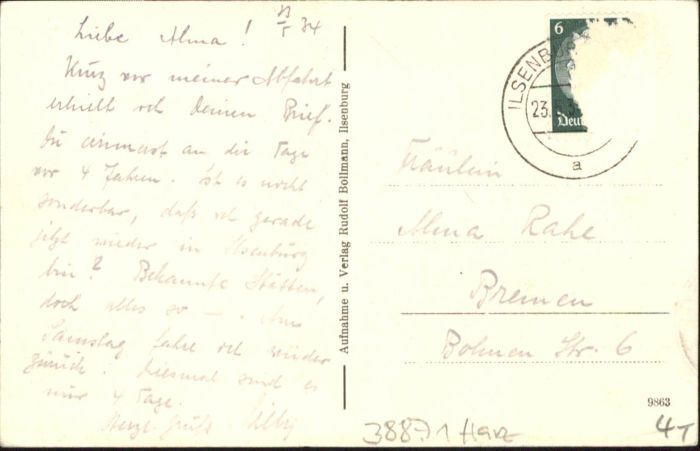 Liebe Alma! 23/5 34
Kurz vor meiner Abfahrt
erhielt ich Deinen Brief.
Du erinnerst an die Tage
vor 4 Jahren. Ist es nicht
sonderbar, daß ich gerade
jetzt wieder in Ilsenburg
bin? Bekannte Stätten,
doch alles so —. Am
Samstag fahre ich wieder
zurück. Diesmal sind es
nur 4 Tage.
Herzl. Gruß
Aufnahme u. Verlag Rudolf Bollmann, Ilsenburg
6
Deut
ILSENBU
23.5.3
a
Fräulein
Alma Rahe
Bremen
Str. 6
9863
38871 Harz
4T